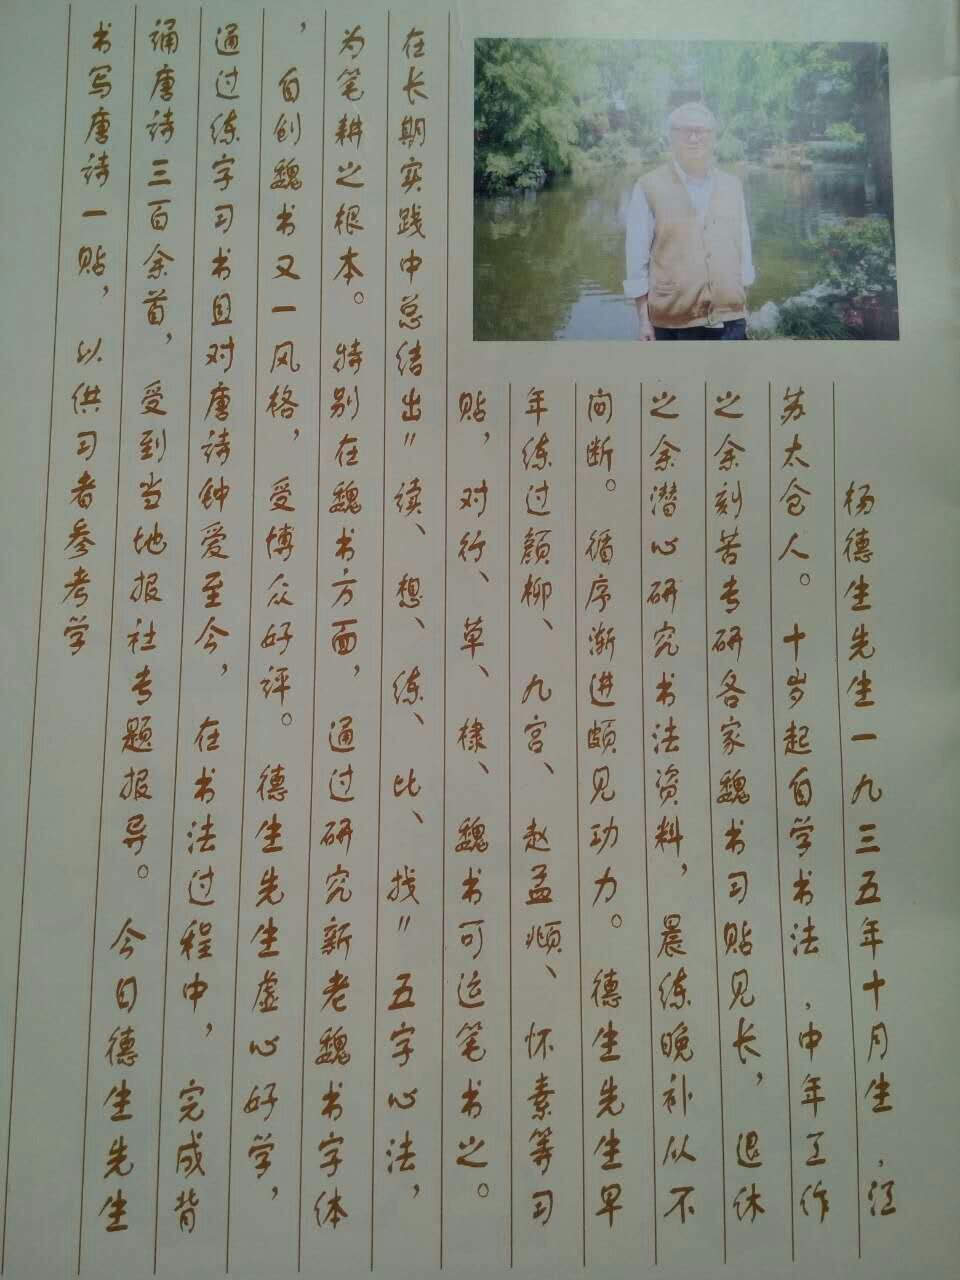 杨德生先生一九三五年十月生，江
苏太仓人。十岁起自学书法，中年工作
之余刻苦专研各家魏书习贴见长，退休
之余潜心研究书法资料，晨练晚补从不
间断。循序渐进颇见功力。德生先生早
年练过颜柳、九宫、赵孟頫、怀素等习
贴，对行、草、棣、魏书可运笔书之。
在长期实践中总结出"读、想、练、比、找"五字心法，
为笔耕之根本。特别在魏书方面，通过研究新老魏书字体
，自创魏书又一风格，受博众好评。德生先生虚心好学，
通过练字习书且对唐诗钟爱至今，在书法过程中，完成背
诵唐诗三百余首，受到当地报社专题报导。今日德生先生
书写唐诗一贴，以供习者参考学